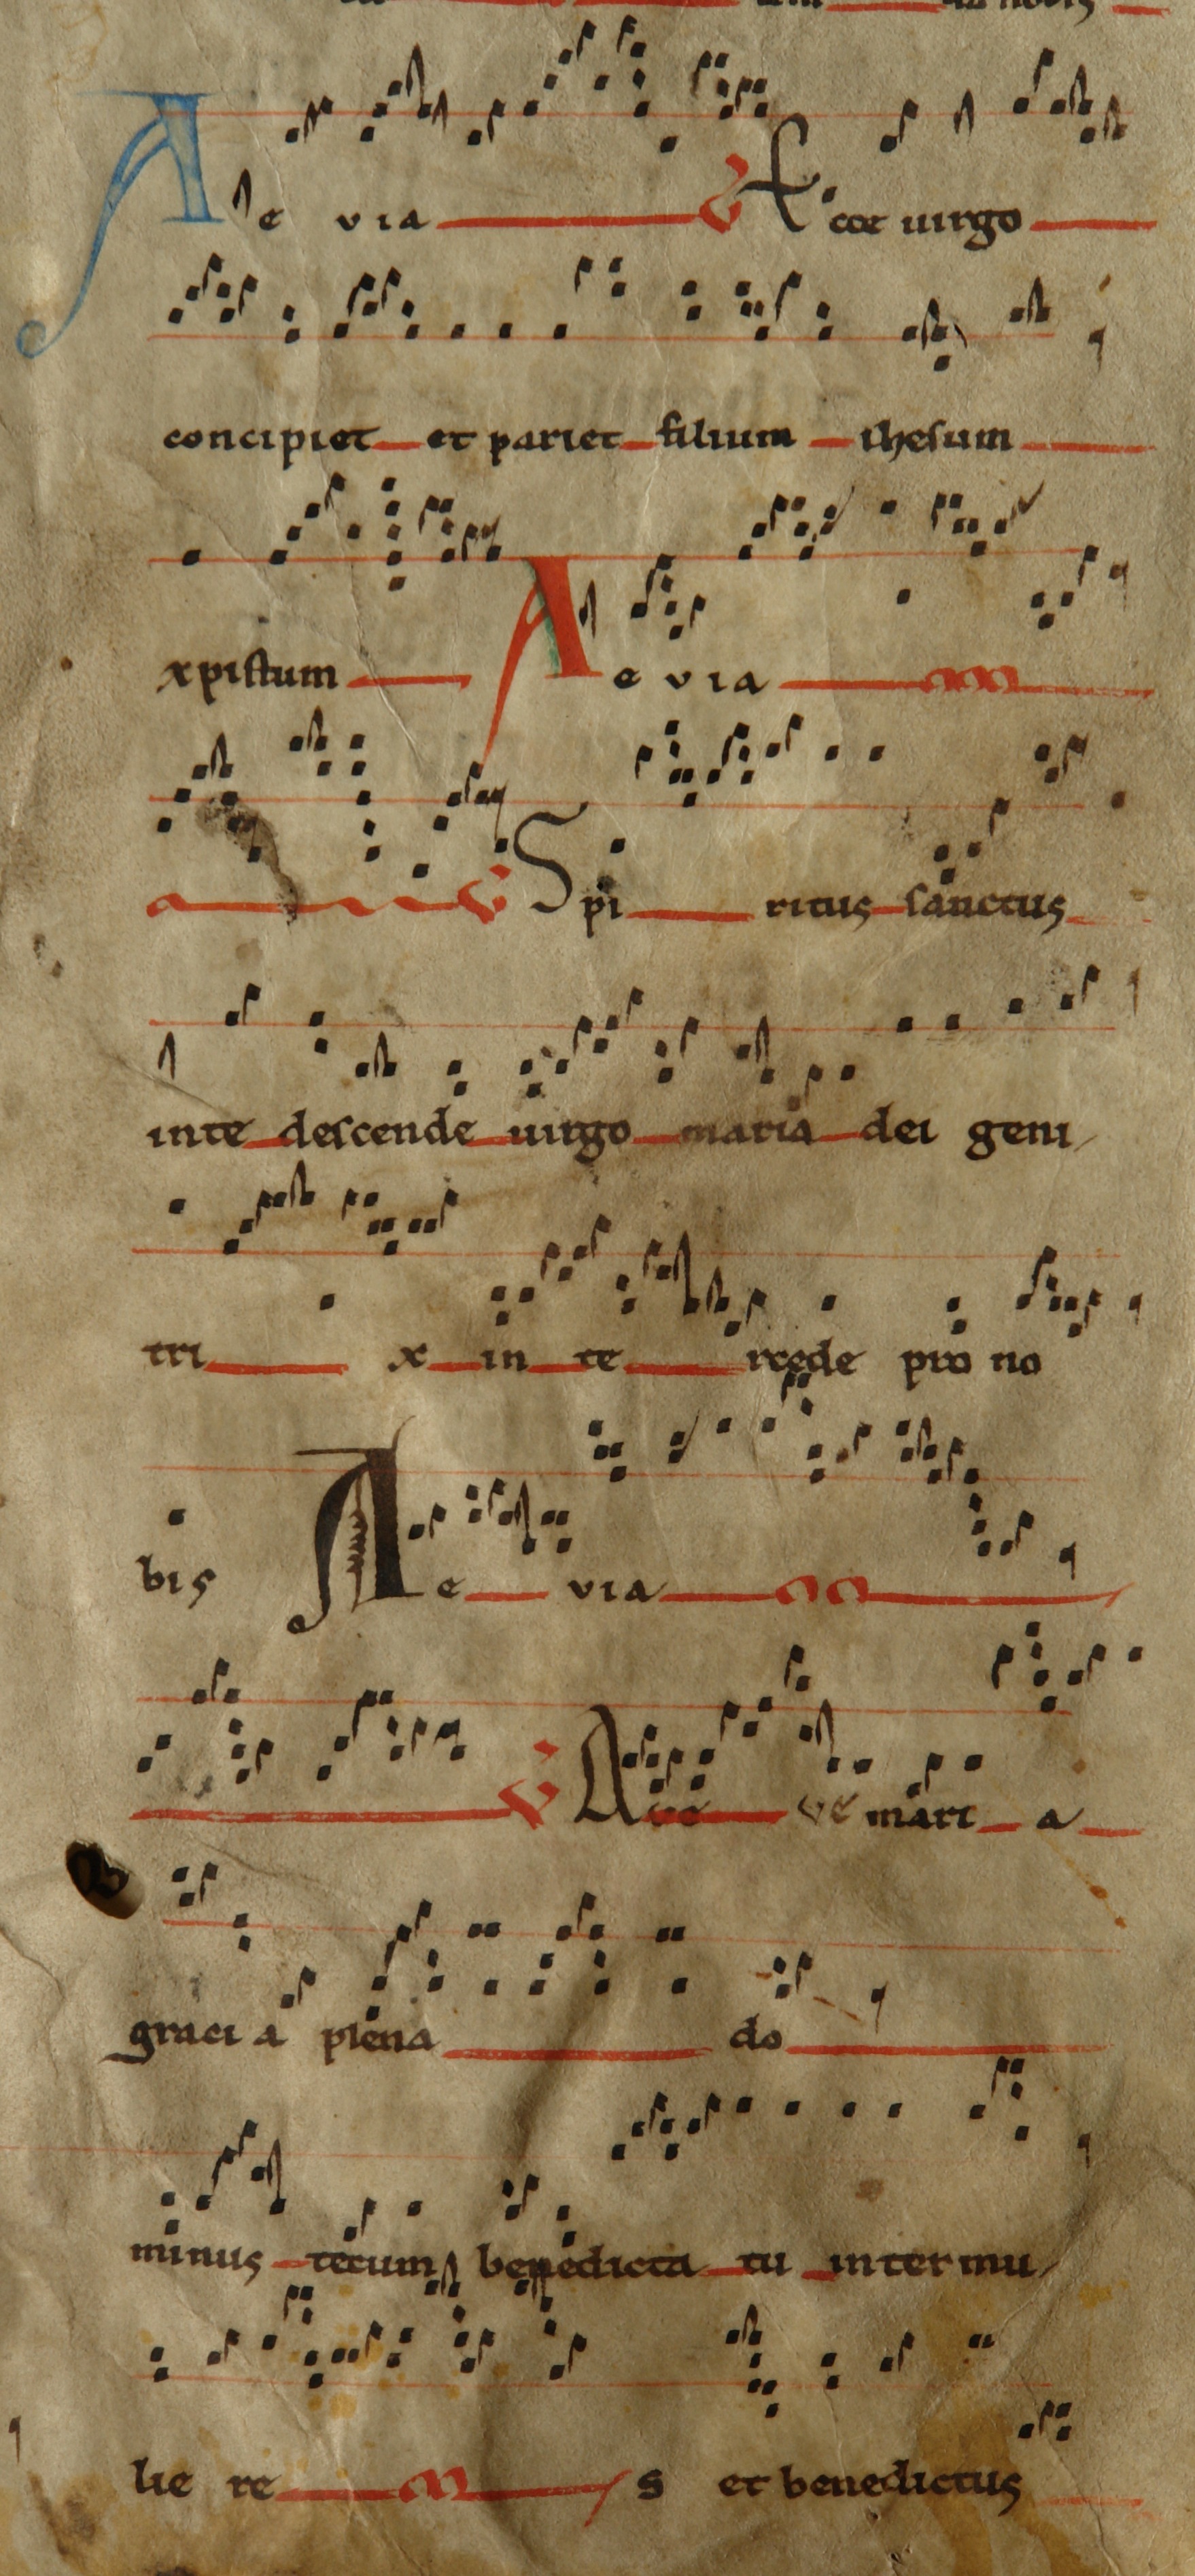 da nobis
A e via V Ecce uirgo
concipiet et pariet filium ihesum
xpistum A e via
V Spi ritus sanctus
inte descende uirgo maria dei geni
tri x in te rcede pro no
bis A e via
V Aue ve mari a
graci a plena do
minus tecum benedicta tu inter mu
lie re s et benedictus